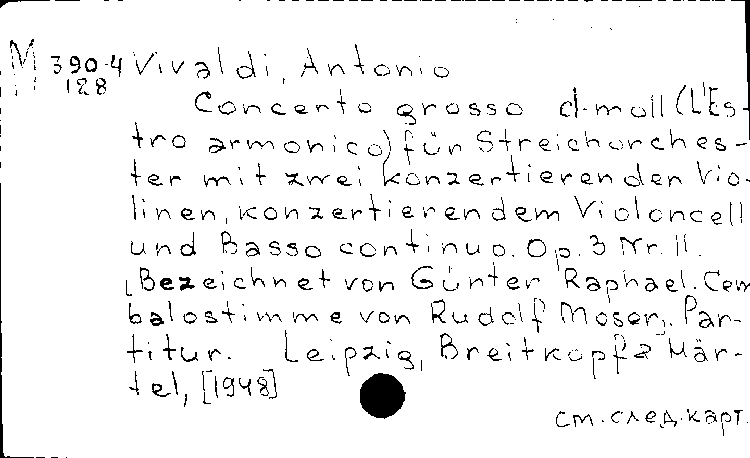 M 390-4 Vivaldi, Antonio
128
Concerto grosso d-moll (L'Es-
tro armonico) für Streichorches-
ter mit zwei konzertierenden Vio-
linen, konzertierendem Violoncell
und Basso continuo. Op. 3 Nr. 11.
[Bezeichnet von Günter Raphael. Cem
balostimme von Rudolf Moser]. Par-
titur. Leipzig, Breitkopf & Här-
tel, [1948]
см. след. карт.